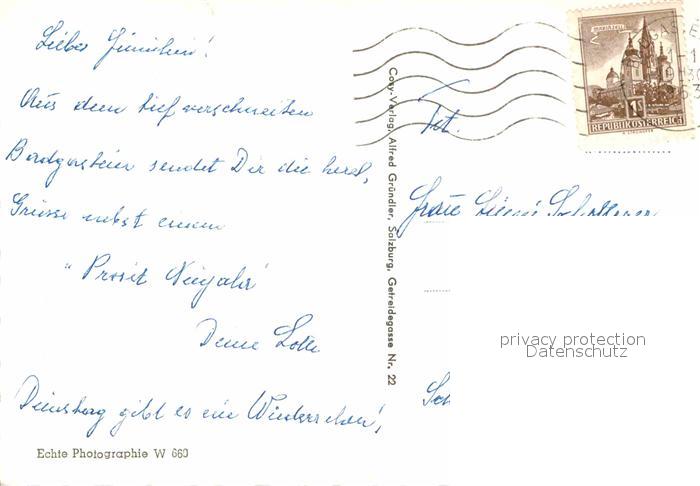 Liebes
Aus dem tief verschneiten
Badgastein sendet Dir die herzl,
Grüsse nebst einem
"Prosit Neujahr"
Deine Lotte
Dienstag gibt es ein Wiedersehen!
Echte Photographie W 660
Cosy-Verlag, Alfred Gründler, Salzburg, Getreidegasse Nr. 22
MARIAZELL
1
REPUBLIK ÖSTERREICH
Frau
privacy protection
Datenschutz
Sch